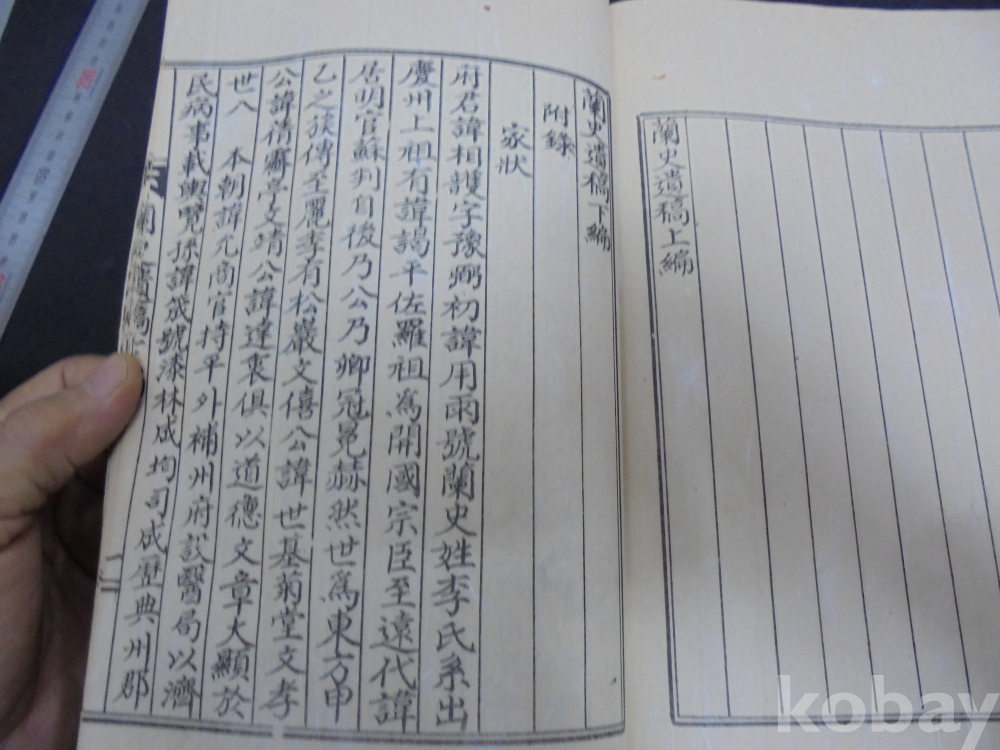 蘭史遺稿上編
蘭史遺稿下編
附錄
家狀
府君諱相護字豫弼初諱用雨號蘭史姓李氏系出
慶州上祖有諱謁平佐羅祖爲開國宗臣至遠代諱
居明官蘇判自後乃公乃卿冠冕赫然世爲東方甲
乙之族傳至麗季有松巖文僖公諱世基菊堂文孝
公諱蒨霽亭文靖公諱達衷俱以道德文章大顯於
世入 本朝諱元尙官持平外補州府設醫局以濟
民病事載輿覽孫諱箴號漆林成均司成歷典州郡
蘭史遺稿
kobay